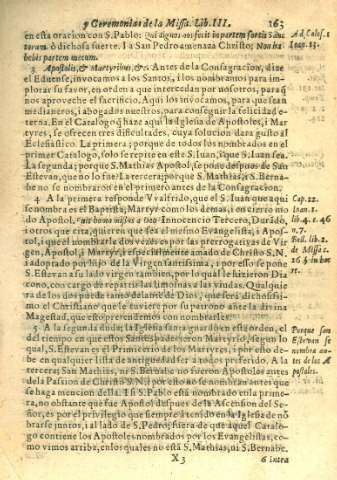 y Ceremonias de la Missa. Lib. III. 263
en esta oracion con S. Pablo: Qui dignos nos fecit in partem sortis Sanc-
torum. ò dichosa suerte. I a San Pedro amenaza Christo; Non ha-
bebis partem mecum.
3 Apostolis, & Martyribus, &c. Antes de la Consagracion, dize
el Eduense, invocamos a los Santos, i los nombramos para im-
plorar su favor, en orden a que intercedan por nosotros, para q̃
nos aproveche el sacrificio. Aqui los invocamos, para que sean
medianeros, i abogados nuestros, para conseguir la felicidad e-
terna. En el Catalogo q̃ haze aqui la Iglesia de Apostoles, i Mar
tyres, se ofrecen tres dificultades, cuya solucion dara gusto al
Eclesiastico. La primera; porque de todos los nombrados en el
primer Catalogo, solo se repite en este S. Iuan, i que S. Iuan sea.
La segunda; porque S. Mathias Apostol, se puso despues de San
Estevan, que no lo fue. La tercera; porque S. Mathias, i S. Berna-
be no se nombraron en el primero antes de la Consagracion.
4 A la primera responde Vvalfrido, que el S. Iuan que aqui
se nombra es el Baptista; Martyr como los demas, i en cierto mo
do Apostol. Fuit homo missus a Deo. Innocencio Tercero, Durãdo,
i otros que cita, quieren que sea el mesmo Evangelista; i Apos-
tol, i que el nombrarla dos vezes es por las prerrogativas de Vir
gen, Apostol, i Martyr, i especialmente amado de Christo S. N.
i adoptado por hijo de la Virgen Santissima, i por esso se pone
S. Estevan a su lado virgen tambien, por lo qual le hizieron Dia
cono, con cargo de repartir las limosnas a las viudas. Qualquie
ra de los dos puede tanto delante de la Divina
Magestad, que estos prenderemos con nombrarles.
5 A la segunda duda; la Iglesia Santa guardò en esta orden, el
del tiempo en que estos Santos padecieron Martyrio, segun lo
qual, S. Estevan es el Primicerio de los Martyres, i por esto de-
be en qualquier lista de antiguedad ser a todos preferido. A la
tercera; San Mathias, ni S. Bernabe no fueron Apostoles antes
de la Passion de Christo S. N. i por esto no se nombran antes que
se haga mencion della. I si S. Pablo està nombrado en la prime-
ra, no obstante que fue Apostol despues de la Ascension del Se-
ñor, es por el privilegio que siempre à tenido en la Iglesia de nõ
brarse juntos, i al lado de S. Pedro, fuera de que aquel Catalo-
go contiene los Apostoles nombrados por los Evangelistas, co-
mo vimos arriba, en los quales no està S. Mathias, ni S. Bernabe.
X 3 6 intra
Ad Colos. 1
Ioan. 13.
Cap. 22.
Ioan. 1.
lib. 4. c. 46
n. 7.
Bell. lib. 2.
de Missa c.
Porque san
Estevan se
nombra an-
tes de los A
postoles.